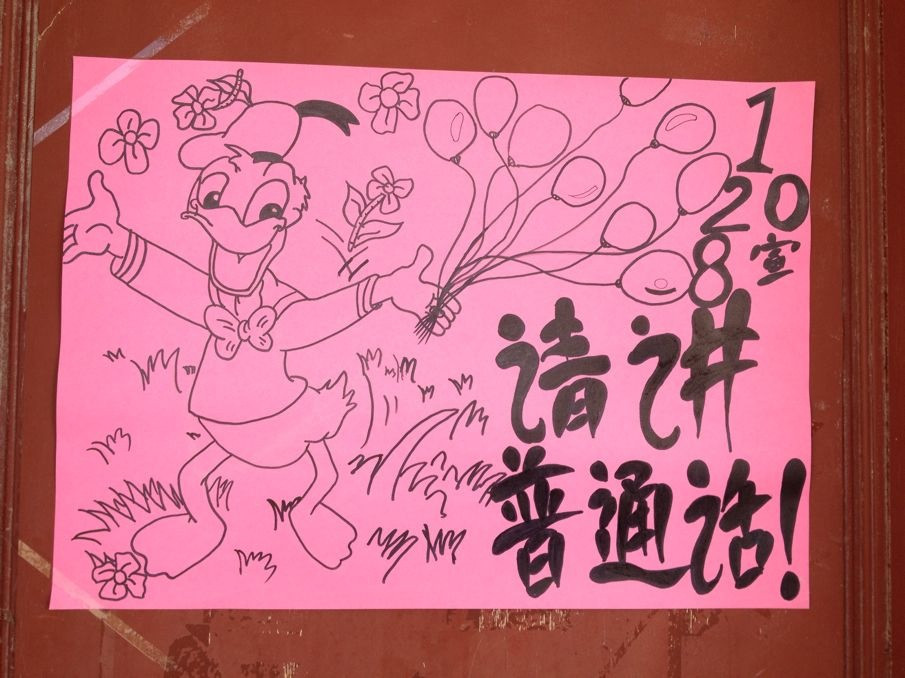 1
20
8宣
请讲
普通话!